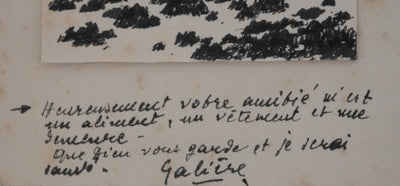 → Heureusement votre amitié m'est
un aliment, un vêtement et une
demeure -
Que Dieu vous garde et je serai
sauvé.